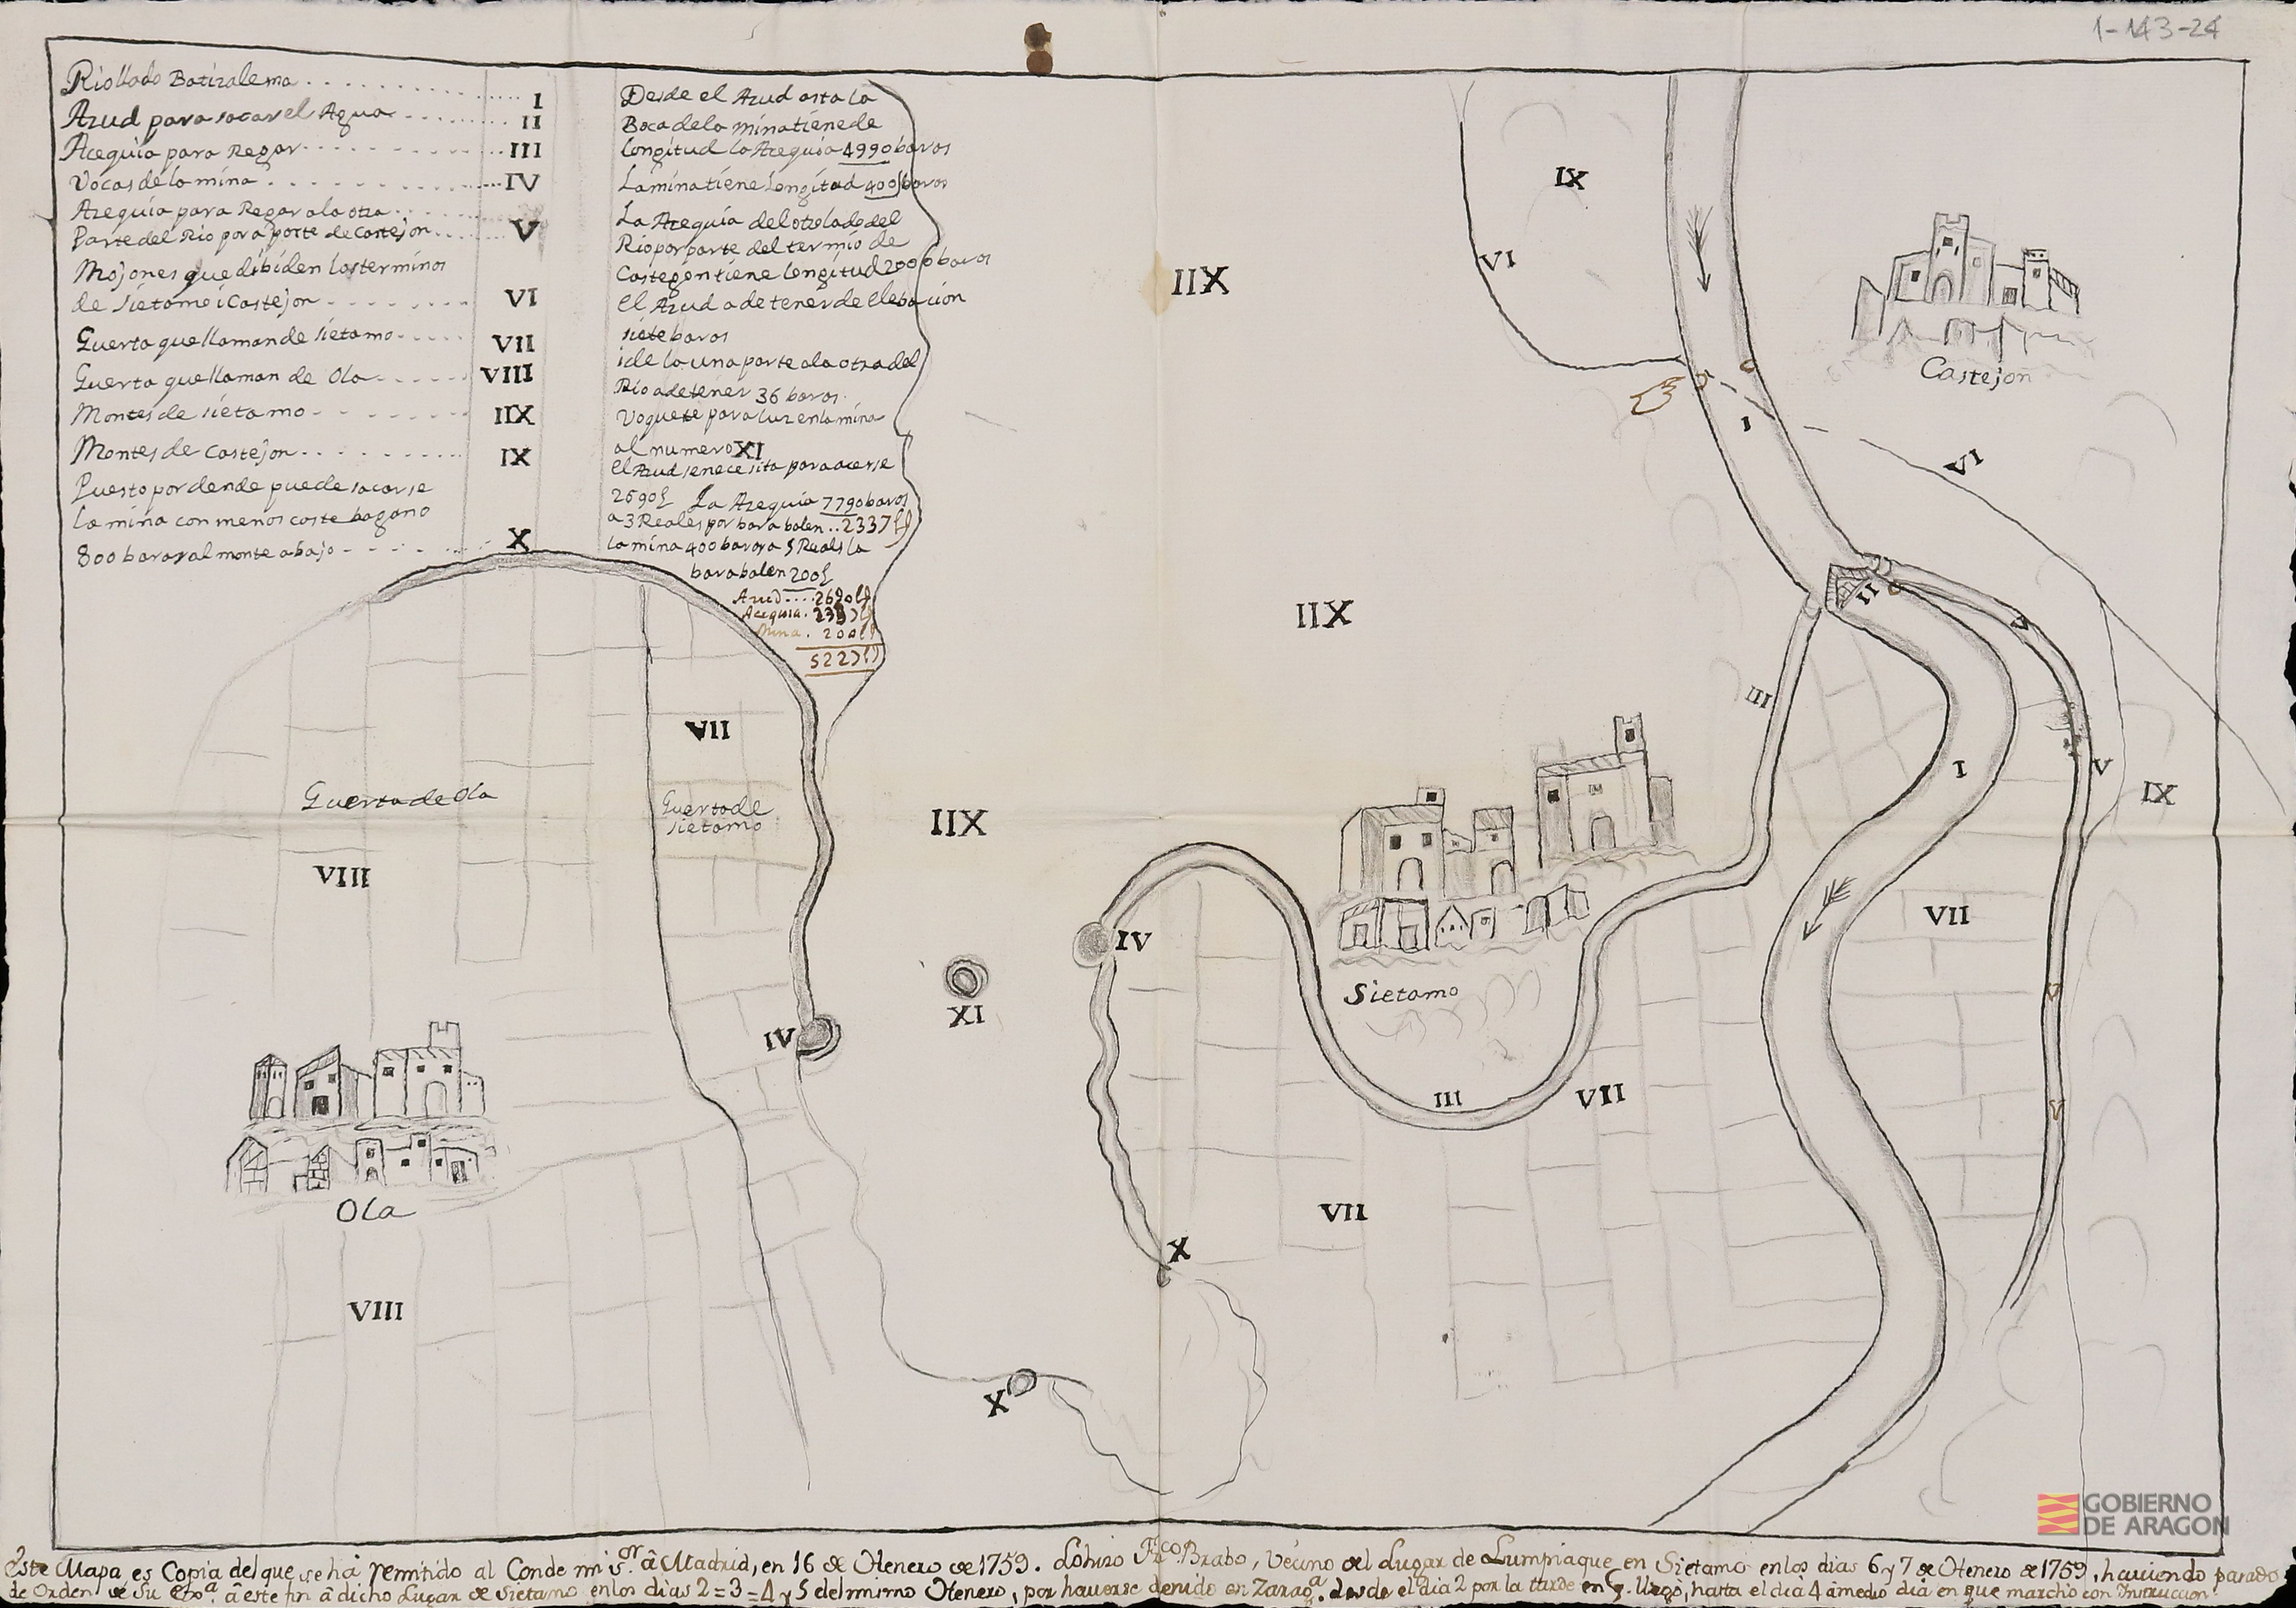 1-143-24
Riollado Batizalema I
Azud para sacar el Agua II
Acequia para Regar III
Vocas de la mina IV
Azequia para Regar a la otra
Parte del Rio por a parte de Castejon V
Mojones que dibiden los terminos
de Sietamo i Castejon VI
Guerta que llaman de Sietamo VII
Guerta que llaman de Ola VIII
Montes de Sietamo IIX
Montes de Castejon IX
Puesto por dende puede sacarse
la mina con menos coste bagano
800 baras al monte abajo X
Desde el Azud asta la
Boca de la mina tiene de
longitud la Azequia 4990 baras
La mina tiene longitud 400 baras
La Azequia del otro lado del
Rio por parte del termio de
Castegon tiene longitud 2000 baras
El Azud a de tener de elebacion
siete baras
i de la una parte a la otra del
Rio a de tener 36 baras.
Voquete para luz en la mina
al numero XI
el Azud se necesita para acerse
2690 ℔ La Azequia 7790 baras
a 3 Reales por bara balen .. 2337 ℔
la mina 400 baras a 5 Reals la
bara balen 200 ℔
Azud .... 2690 ℔
Acequia . 2337 ℔
Mina . 200 ℔
5227 ℔
IX
VI
IIX
Castejon
I
VI
II
IIX
V
III
VII
I
V
IX
Guerta de Ola
Guerta de
Sietamo
IIX
VIII
VII
IV
V
Sietamo
XI
IV
III
VII
V
Ola
VII
X
VIII
X
GOBIERNO
DE ARAGON
Este Mapa es Copia del que se há remitido al Conde mi Sr. â Madrid, en 16 de Henero de 1759. Lo hizo Frco. Brabo, Vecino del Lugar de Lumpiaque en Sietamo en los dias 6 y 7 de Henero de 1759, haviendo pasado
de Orden de Su Exa. â este fin â dicho Lugar de Sietamo en los dias 2=3=4 y 5 del mismo Henero, por haverse denido en Zaraga. desde el dia 2 por la tarde en q. llego, hasta el dia 4 â medio dia en que marcho con Instruccion.